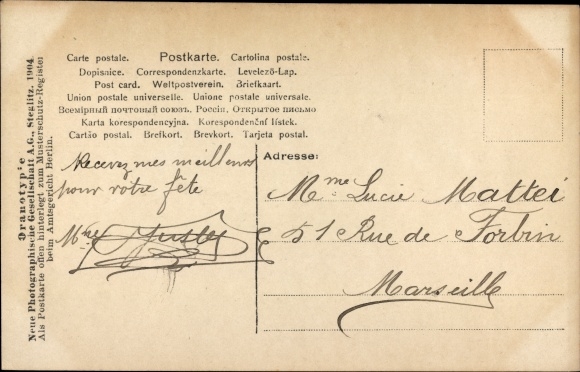 Carte postale. Postkarte. Cartolina postale.
Dopisnice. Correspondenzkarte. Levelező-Lap.
Post card. Weltpostverein. Briefkaart.
Union postale universelle. Unione postale universale.
Всемірный почтовый союзъ. Россія. Открытое письмо
Karta korespondencyjna. Korespondenční lístek.
Cartão postal. Brefkort. Brevkort. Tarjeta postal.
Recevez mes meilleurs
pour votre fête
Mme
Adresse:
Mme Lucie Mattei
51 Rue de Forbin
Marseille
Oranotypie
Neue Photographische Gesellschaft A.G., Steglitz. 1904.
Als Postkarte offen hinterlegt zum Musterschutz-Register
beim Amtsgericht Berlin.